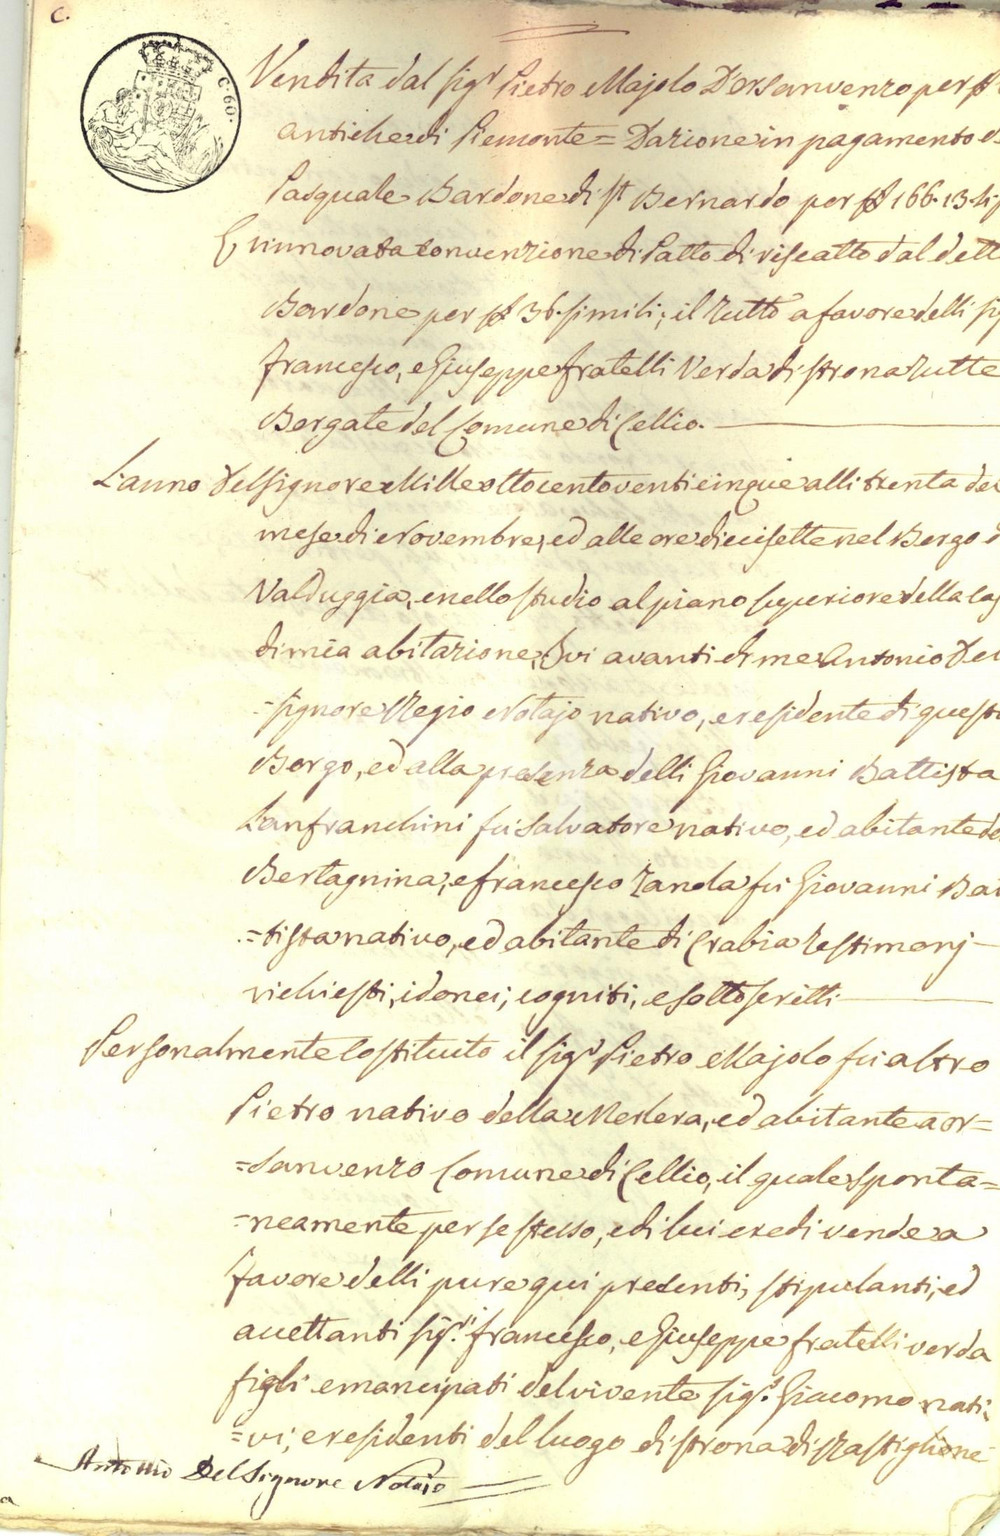 C.
C. 60.
Vendita dal Sig.r Pietro Majolo D'orsanvenzo per
antiche di Piemonte = Dazione in pagamento
Pasquale Bardone di S.t Bernardo per 166.13.
E innovata convenzione di Patto di riscatto dal dett
Bardone per 36. simili; il tutto a favore delli
Francesco, e Giuseppe fratelli Verda di Strona tutte
Borgate del Comune di Cellio.
L'anno Del Signore Mille ottocento venti cinque alli trenta del
mese di Novembre, ed alle ore diecisette nel Borgo
Valduggia, e nello studio al piano superiore della
di mia abitazione, Ivi avanti di me Antonio Del
=signore Regio Notajo nativo, e residente di questo
Borgo, ed alla presenza delli Giovanni Battista
Lanfranchini fu Salvatore nativo, ed abitante
Bertagnina, e francesco Zanola fu Giovanni Bat
=tista nativo, ed abitante di Crabia Testimonj
richiesti, idonei, cogniti, e sottoscritti
Personalmente Costituito il Sig.r Pietro Majolo fu altro
Pietro nativo della Merlera, ed abitante a or=
=sanvenzo Comune di Cellio, il quale sponta=
=neamente per se stesso, e di lui eredi vende a
favore delli pure qui presenti, stipulanti, ed
accettanti Sig.ri francesco, e Giuseppe fratelli verda
figli emancipati del vivente Sig.r Giacomo nati=
=vi, e residenti del luogo di Strona di Rastiglione
Antonio Del Signore Notaio